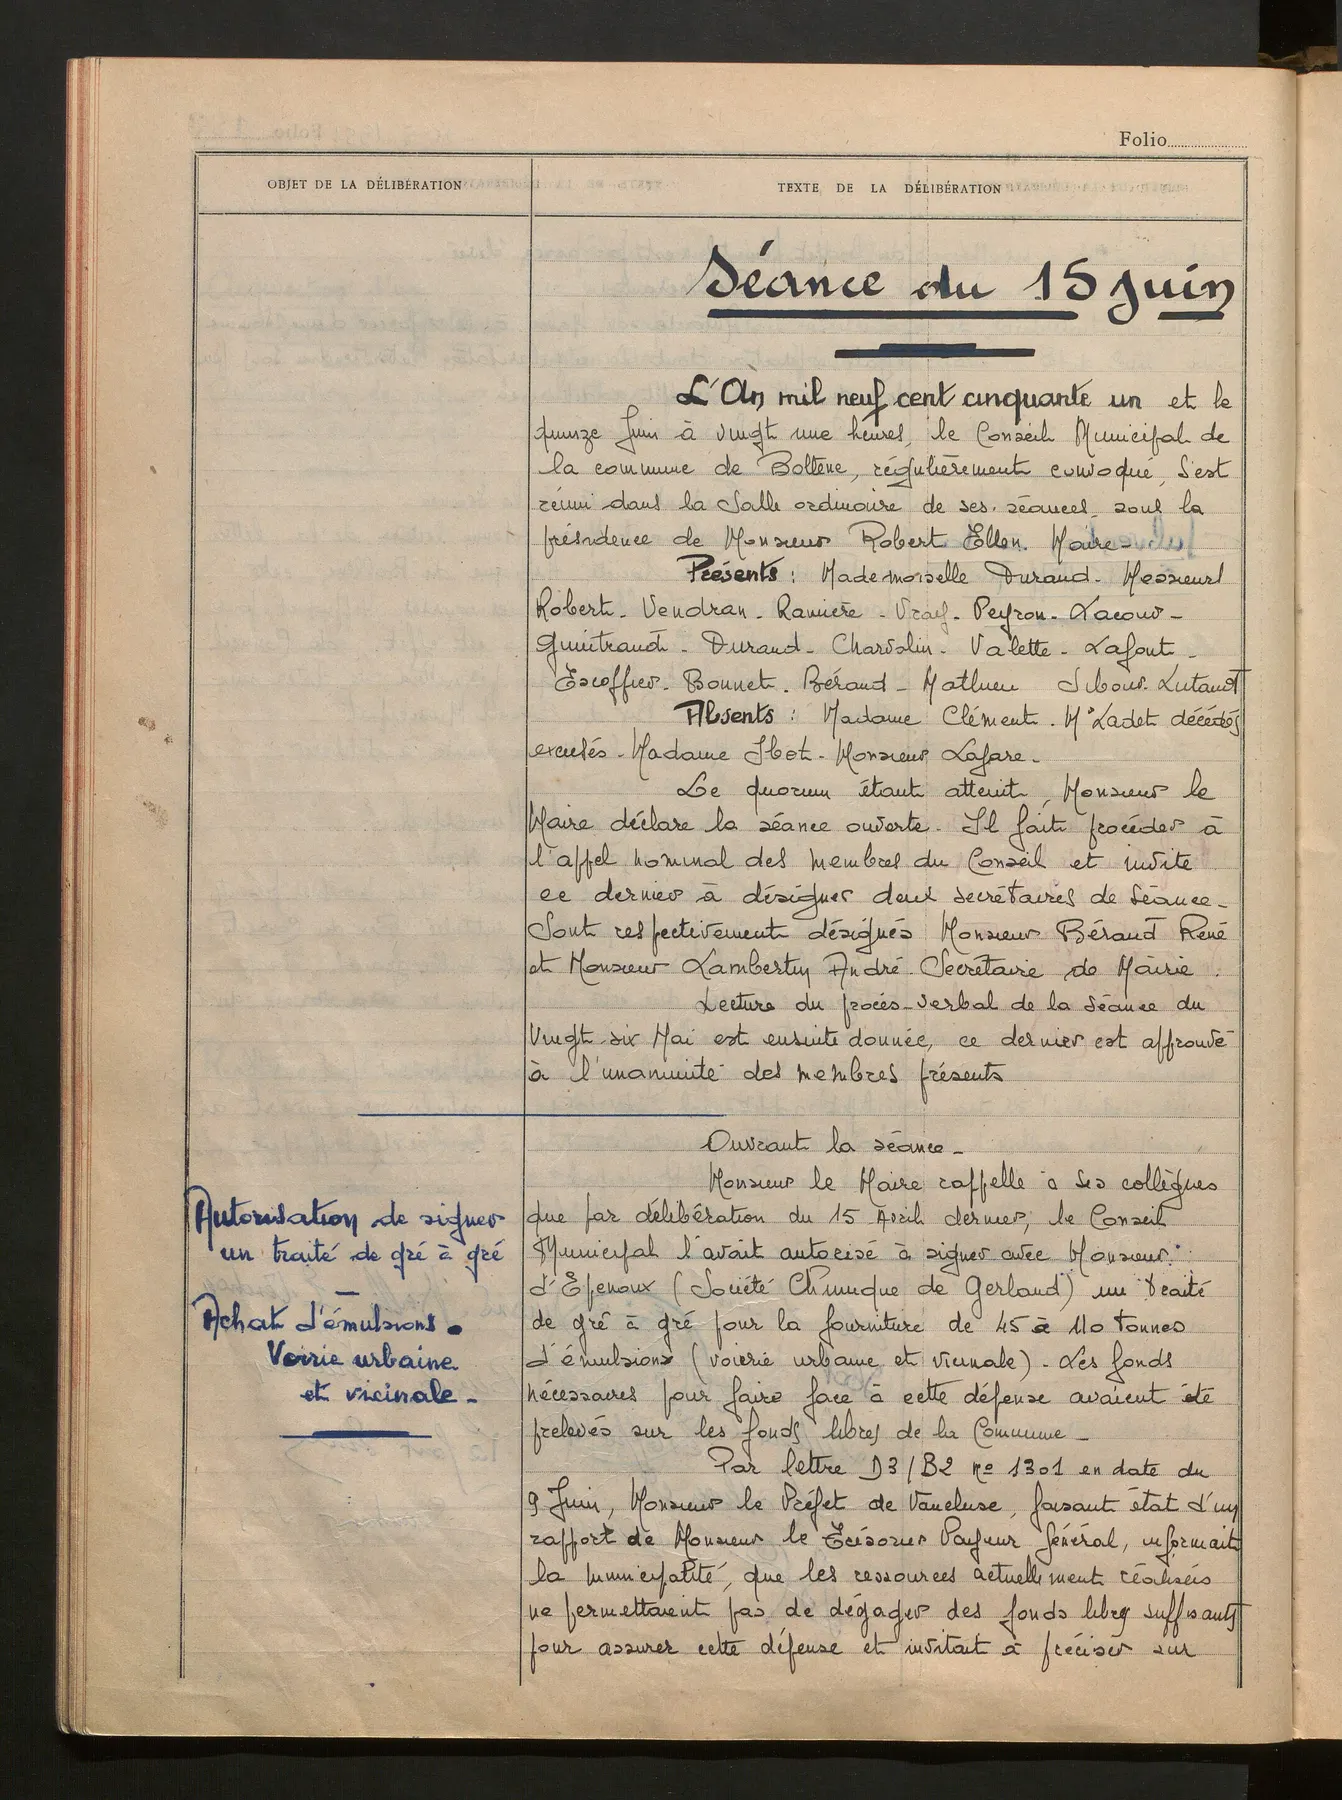 Folio
OBJET DE LA DÉLIBÉRATION
TEXTE DE LA DÉLIBÉRATION
Séance du 15 Juin
L'An mil neuf cent cinquante un et le
quinze Juin à vingt une heures, le Conseil Municipal de
la commune de Bollène, régulièrement convoqué, s'est
réuni dans la Salle ordinaire de ses séances, sous la
présidence de Monsieur Robert Ellen. Maire-
Présents : Mademoiselle Durand. Messieurs
Robert. Vendran. Ranière. Peyron. Lacour-
Guintrand - Durand - Charvolin - Valette - Lafont -
Escoffier. Bonnet. Béraud - Mathieu Sibour. Lutaud
Absents : Madame Clément. Mr Ladet décédés
excusés - Madame Ibot - Monsieur Lafare -
Le quorum étant atteint, Monsieur le
Maire déclare la séance ouverte. Il fait procéder à
l'appel nominal des membres du Conseil et invite
ce dernier à désigner deux secrétaires de séance -
Sont respectivement désignés Monsieur Béraud René
et Monsieur Lambertin André Secrétaire de Mairie.
Lecture du procès-verbal de la séance du
Vingt six Mai est ensuite donnée, ce dernier est approuvé
à l'unanimité des membres présents
Ouvrant la séance -
Monsieur le Maire rappelle à ses collègues
que par délibération du 15 Avril dernier, le Conseil
Municipal l'avait autorisé à signer avec Monsieur
d'Epenoux (Société Chimique de Gerland) un traité
de gré à gré pour la fourniture de 45 à 110 tonnes
d'émulsions (voierie urbaine et vicinale). Les fonds
nécessaires pour faire face à cette dépense avaient été
prelevés sur les fonds libres de la Commune -
Par lettre D3/B2 no 1301 en date du
9 Juin, Monsieur le Préfet de Vaucluse, faisant état d'un
rapport de Monsieur le Trésorier Payeur Général, informait
la municipalité, que les ressources actuellement réalisées
ne permettaient pas de dégager des fonds libres suffisants
pour assurer cette dépense et invitait à préciser sur
Autorisation de signer
un traité de gré à gré
-
Achat d'émulsions.
Voirie urbaine
et vicinale -